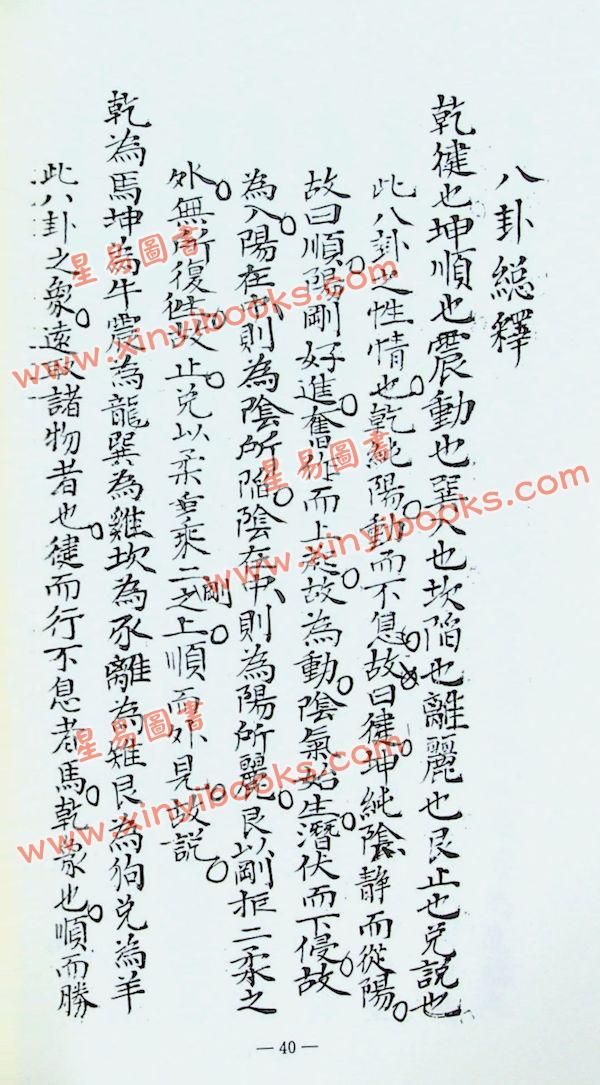 八卦總釋
乾健也坤順也震動也巽入也坎陷也離麗也艮止也兌說也
此八卦之性情也乾純陽動而不息故曰健坤純陰靜而從陽
故曰順陽剛好進奮作而上起故為動陰氣始生潛伏而下侵故
為入陽在中則為陰所陷陰在中則為陽所麗艮以剛拒二柔之
外無所復往故止兌以柔乘二剛之上順而外見故說
乾為馬坤為牛震為龍巽為雞坎為豕離為雉艮為狗兌為羊
此八卦之象遠取諸物者也健而行不息者馬乾象也順而勝
— 40 —
星易圖書
www.xinyibooks.com
星易圖書
www.xinyibooks.com
星易圖書
www.xinyibooks.com